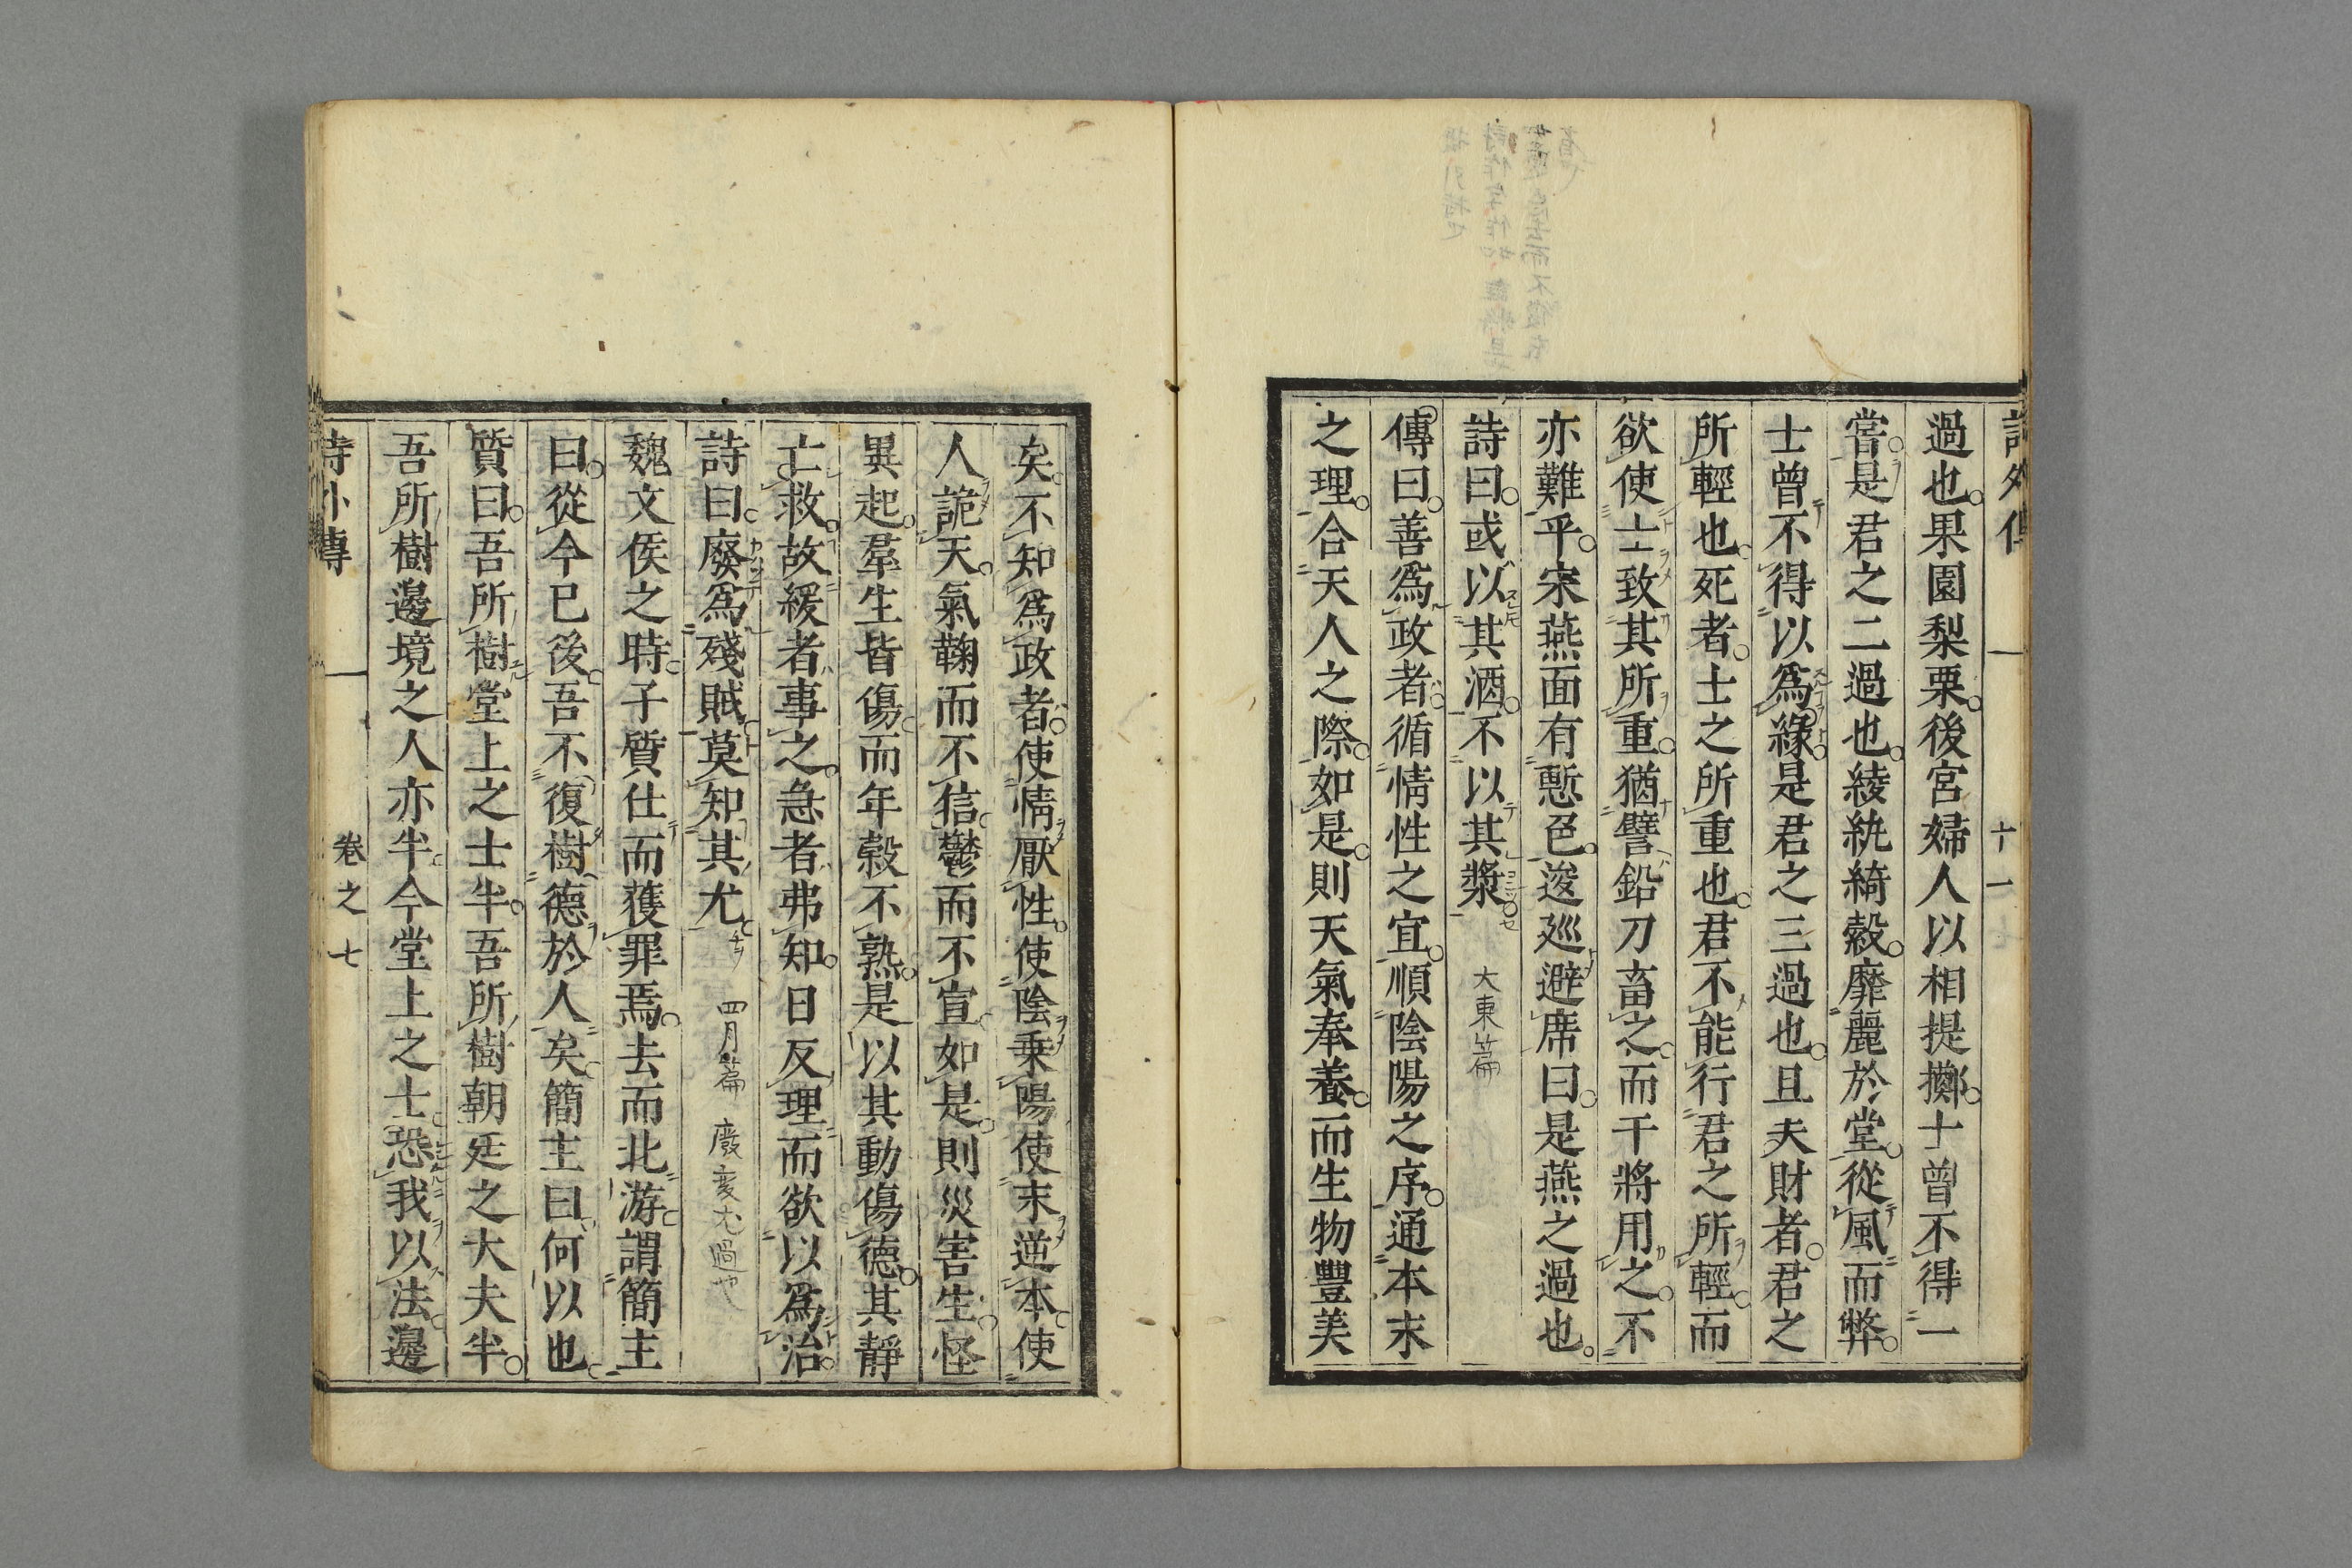 過也果園梨栗後宮婦人以相提擲士曾不得一
嘗是君之二過也綾紈綺縠靡麗於堂從風而弊
士曾不得以爲緣是君之三過也且夫財者君之
所輕也死者士之所重也君不能行君之所輕而
欲使士致其所重猶譬鉛刀畜之而干將用之不
亦難乎宋燕面有慙色逡廵避席曰是燕之過也
詩曰或以其酒不以其漿 大東篇
傳曰善爲政者循情性之宜順陰陽之序通本末
之理合天人之際如是則天氣奉養而生物豐美
矣不知爲政者使情厭性使陰乗陽使末逆本使
人詭天氣鞠而不信鬱而不宣如是則災害生怪
異起羣生皆傷而年穀不熟是以其動傷德其靜
亡救故緩者事之急者弗知日反理而欲以爲治
詩曰廢爲殘賊莫知其尤 四月篇 廢変尤過也
魏文侯之時子質仕而獲罪焉去而北游謂簡主
曰從今已後吾不復樹德於人矣簡主曰何以也
質曰吾所樹堂上之士半吾所樹朝廷之大夫半
吾所樹邊境之人亦半今堂上之士恐我以法邊
卷之七